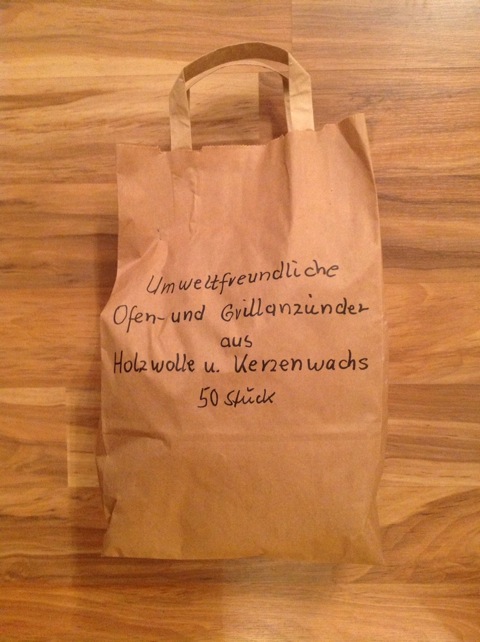 Umweltfreundliche
Ofen- und Grillanzünder
aus
Holzwolle u. Kerzenwachs
50 Stück